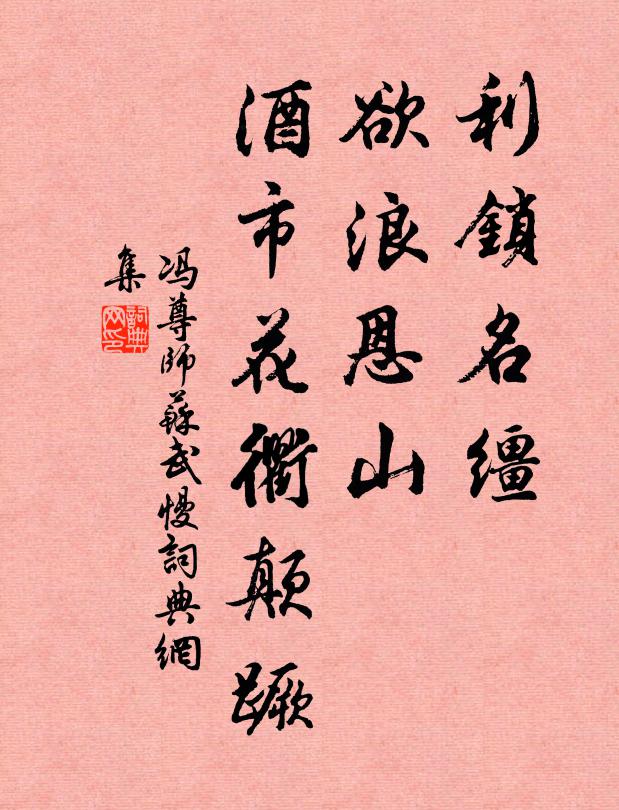 利鎖名繮
欲浪恩山
酒市花衢顛蹶
冯尊師蘇武慢詞典網
集
詞典
网印